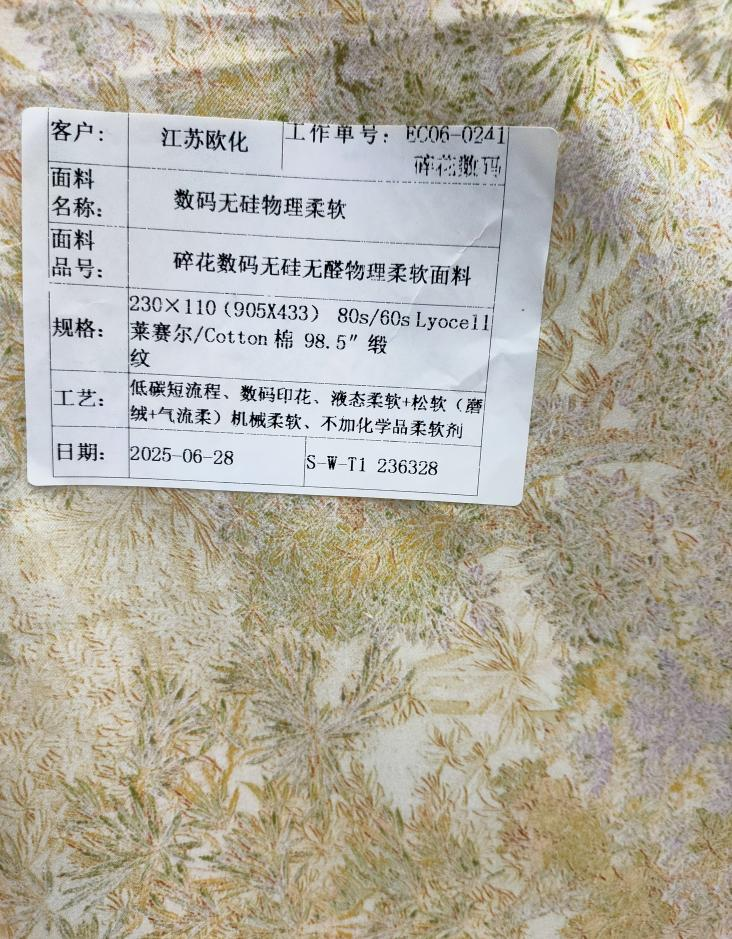 客户： 江苏欧化 工作单号： EC06-0241
碎花数码
面料
名称： 数码无硅物理柔软
面料
品号： 碎花数码无硅无醛物理柔软面料
规格： 230×110（905X433） 80s/60s Lyocell
莱赛尔/Cotton 棉 98.5″ 缎
纹
工艺： 低碳短流程、数码印花、液态柔软+松软（磨
绒+气流柔）机械柔软、不加化学品柔软剂
日期： 2025-06-28 S-W-T1 236328